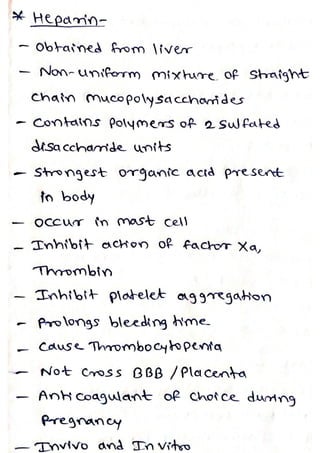 * Heparin-
- Obtained from liver
- Non-uniform mixture of straight
chain mucopolysaccharides
- Contains Polymers of 2 sulfated
disaccharide units
- Strongest organic acid present
in body
- occur in mast cell
- Inhibit action of factor Xa,
Thrombin
- Inhibit platelet aggregation
- Prolongs bleeding time.
- Cause Thrombocytopenia
- Not cross BBB / Placenta
- Anticoagulant of choice during
Pregnancy
- Invivo and Invitro